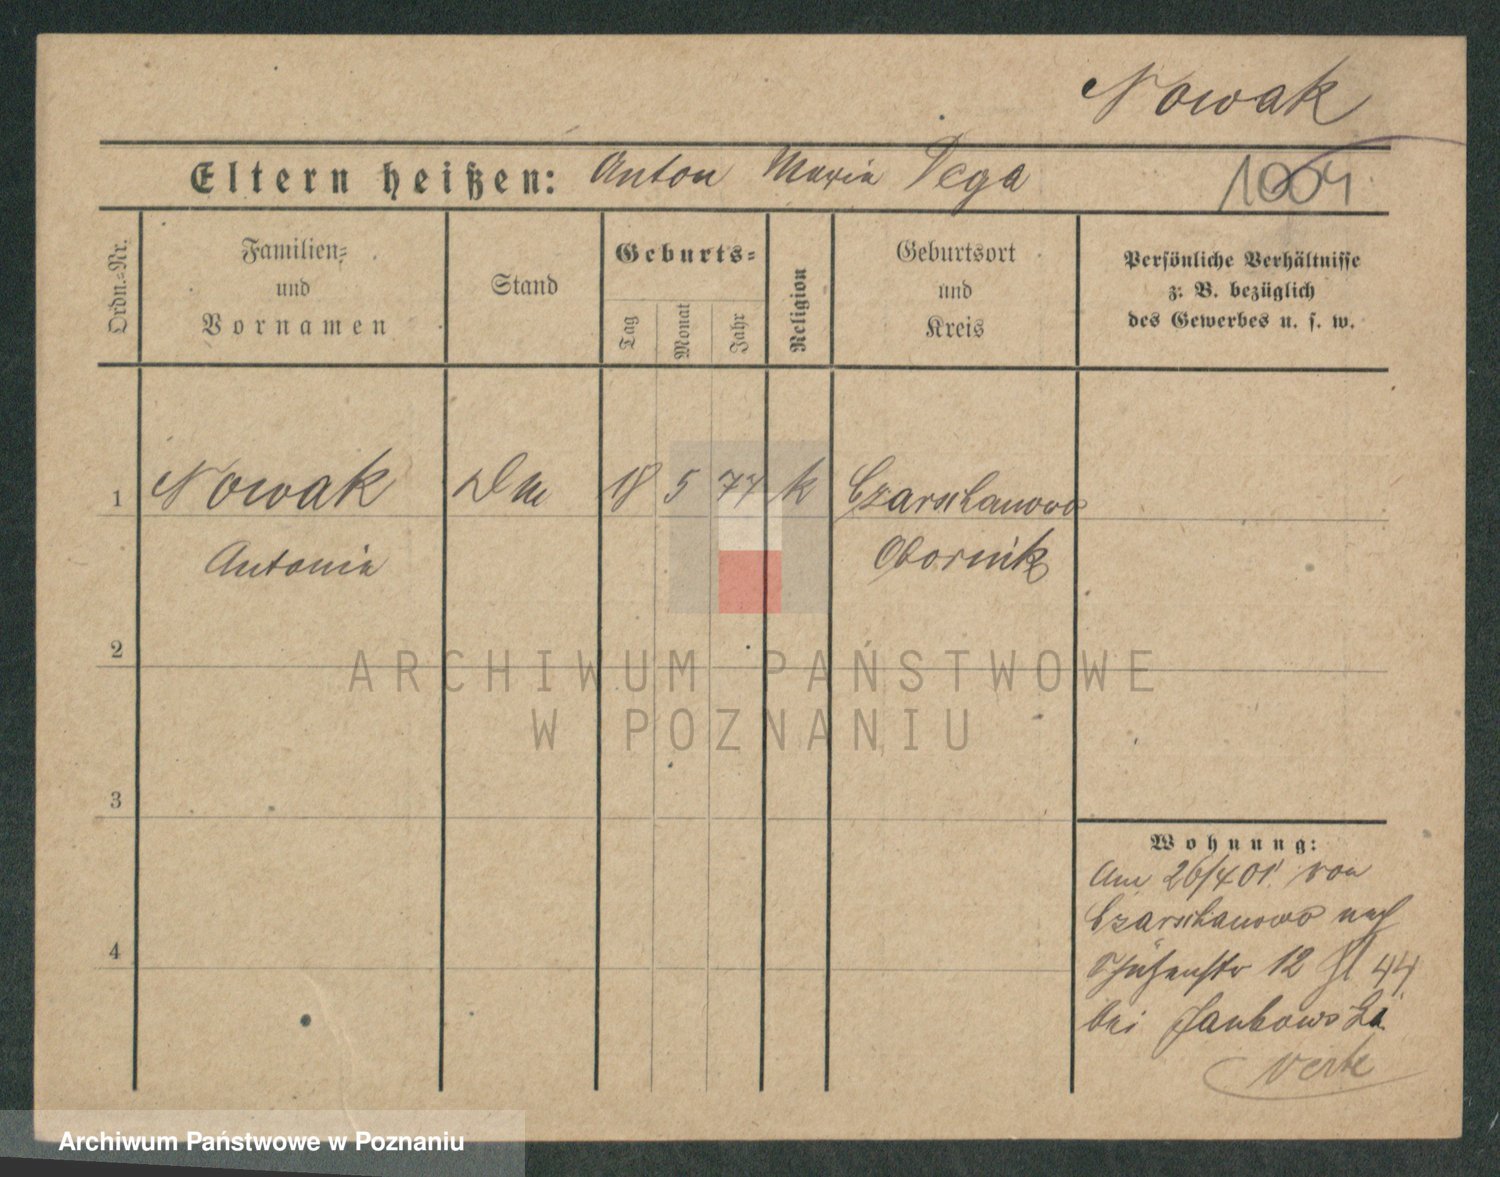 Nowak
Eltern heißen: Anton Maria Pega
1004
Ordn.=Nr.
Familien=
und
Vornamen
Stand
Geburts=
Tag
Monat
Jahr
Religion
Geburtsort
und
Kreis
Persönliche Verhältnisse
z. B. bezüglich
des Gewerbes u. s. w.
1 Nowak 18 5 77 k
Antonie Obornik
2
ARCHIWUM PAŃSTWOWE
W POZNANIU
3
4
Wohnung:
Am 26/4 01. von
nach
12 44
bei Jankowski
Archiwum Państwowe w Poznaniu